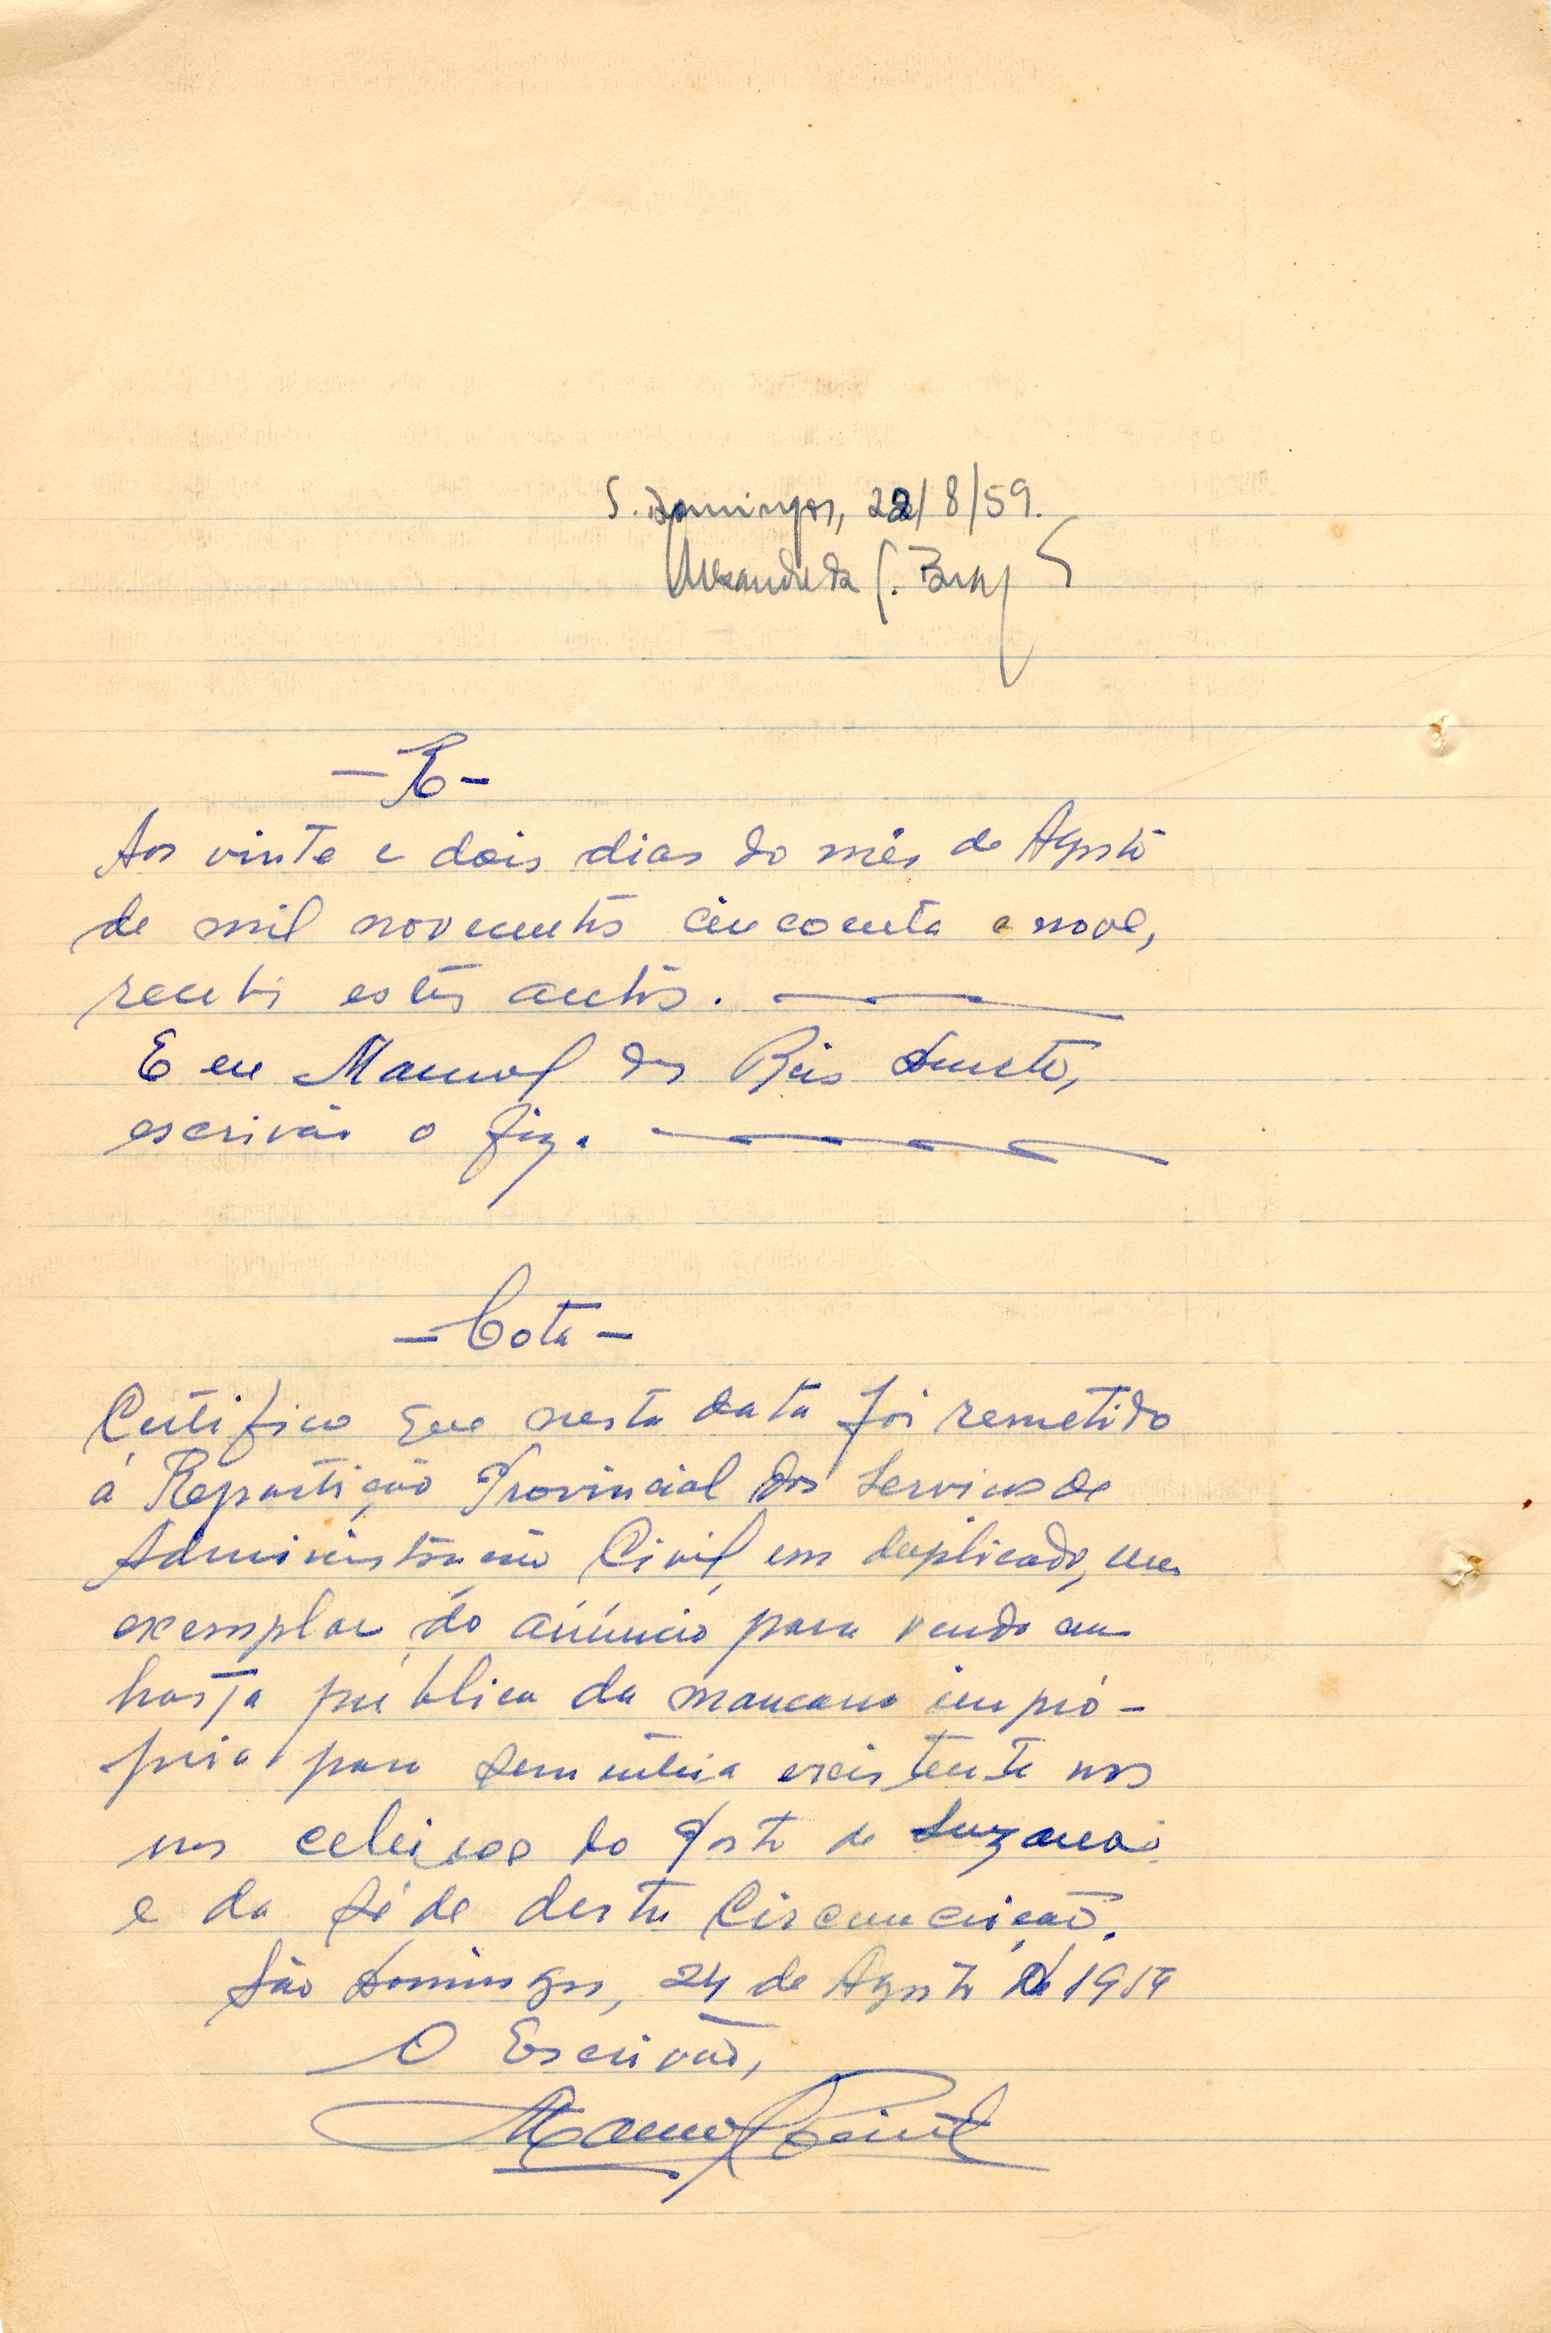 S. Domingos, 22/8/59.
- R -
Aos vinte e dois dias do mês de Agosto
de mil novecentos cincoenta e nove,
recebi estes autos.
E eu Manuel dos Reis
escrivão o fiz.
- Cota -
Certifico que nesta data foi remetido
á Repartição Provincial dos Serviços de
Administração Civil, em duplicado, um
exemplar do anúncio para venda em
hasta pública da mancarra impró-
pria para sementeira existente nos
nos celeiros do Posto de Suzana
e da séde desta Circunscrição.
São Domingos, 24 de Agosto de 1959
O Escrivão,
Manuel